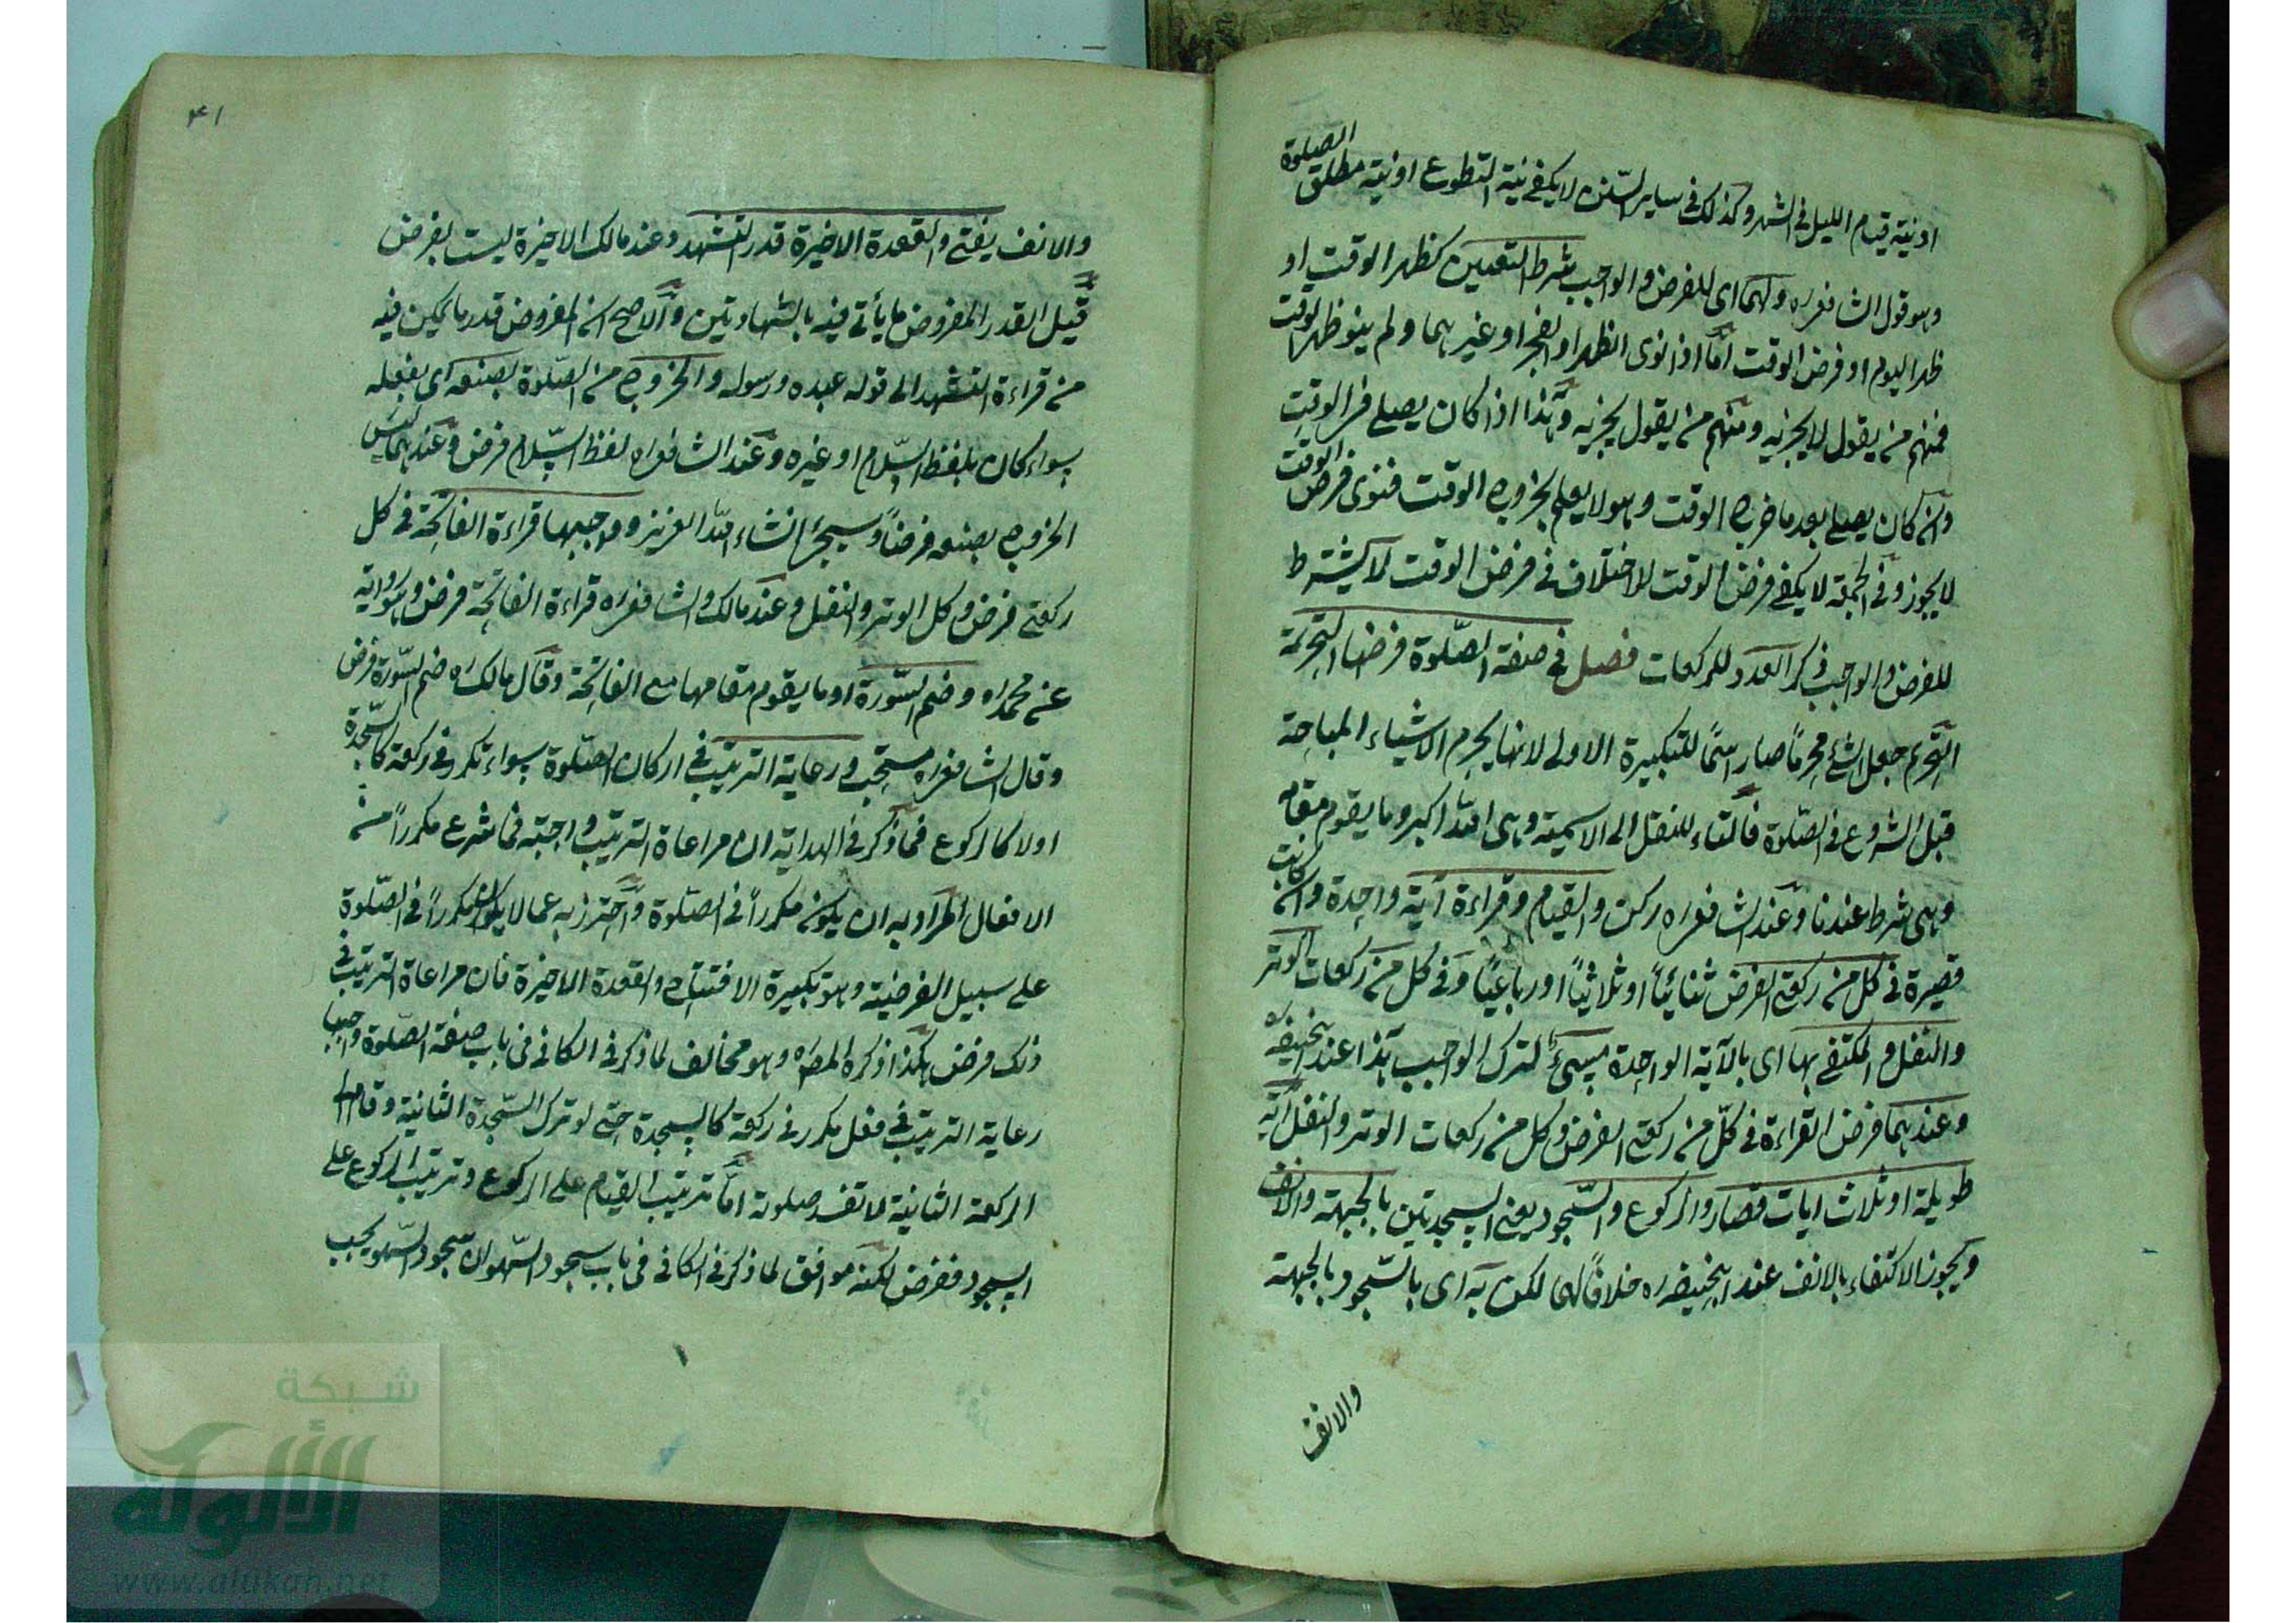 او نية قيام الليل في الشهر وكذلك في ساير السنن لا يكفي نية التطوع او نية مطلق الصلوة
وهو قول الشافعي ره ولهما اى للفرض والواجب شرط التعيين كظهر الوقت او
ظهر اليوم او فرض الوقت اما اذا نوى الظهر او الفجر او غيرهما ولم ينو ظهر الوقت
فمنهم من يقول لا يجزيه ومنهم من يقول يجزيه وهذا اذا كان يصلي في الوقت
وان كان يصلي بعد ما خرج الوقت وهو لا يعلم بخروج الوقت فنوى فرض الوقت
لا يجوز وفي الجمعة لا يكفي فرض الوقت للاختلاف في فرض الوقت لا يشترط
للفرض والواجب ذكر العدد للركعات فصل في صفة الصلوة فرضها التحريمة
التحريم جعل الشئ محرماً صار اسماً للتكبيرة الاولى لانها يحرم الاشياء المباحة
قبل الشروع في الصلوة فالتاء للنقل الى الاسمية وهي الله اكبر وما يقوم مقام
وهي شرط عندنا وعند الشافعي ره ركن والقيام وقراءة آية واحدة وان كانت
قصيرة في كل من ركعتي الفرض ثنائياً او ثلاثياً او رباعياً وفي كل من ركعات الوتر
والنفل والمكتفي بها اى بالآية الواحدة مسئ لترك الواجب هذا عند ابيحنيفة ره
وعندهما فرض القراءة في كل من ركعتي الفرض وكل من ركعات الوتر والنفل آية
طويلة او ثلاث ايات قصار والركوع والسجود يعني السجدتين بالجبهة والانف
ويجوز الاكتفاء بالانف عند ابيحنيفة ره خلافاً لهما لكن به اى بالسجود بالجبهة
والانف
٤١
والانف يفتي والقعدة الاخيرة قدر التشهد وعند مالك الاخيرة ليست بفرض
قيل القدر المفروض ما يأتي فيه بالشهادتين والاصح ان المفروض قدر ما يمكن فيه
من قراءة التشهد الى قوله عبده ورسوله والخروج من الصلوة بصنعه اى بفعله
سواء كان بلفظ السلام او غيره وعند الشافعي ره لفظ السلام فرض وعندهما ليس
الخروج بصنعه فرضاً وسيجئ انشاء الله العزيز وواجبها قراءة الفاتحة في كل
ركعتي فرض وكل الوتر والنفل وعند مالك والشافعي ره قراءة الفاتحة فرض وهو رواية
عن محمد ره وضم السورة او ما يقوم مقامها مع الفاتحة وقال مالك ره ضم السورة فرض
وقال الشافعي ره مستحب ورعاية الترتيب في اركان الصلوة سواء تكرر في ركعة كالسجدة
او لا كالركوع فما ذكر في الهداية ان مراعاة الترتيب واجبة فما شرع مكرراً من
الافعال المراد به ان يكون مكرراً في الصلوة واحترز به عما لا يكون مكرراً في الصلوة
على سبيل الفرضية وهو تكبيرة الافتتاح والقعدة الاخيرة فان مراعاة الترتيب في
ذلك فرض هكذا ذكره المصره وهو مخالف لما ذكر في الكافي في باب صفة الصلوة واجبها
رعاية الترتيب في فعل مكرر في ركعة كالسجدة حتى لو ترك السجدة الثانية وقام الى
الركعة الثانية لا تفسد صلوته اما ترتيب القيام على الركوع وترتيب الركوع على
السجود ففرض لكنه موافق لما ذكر في الكافي في باب سجود السهو ان سجود السهو يجب
شبكة
الألوكة
www.alukah.net